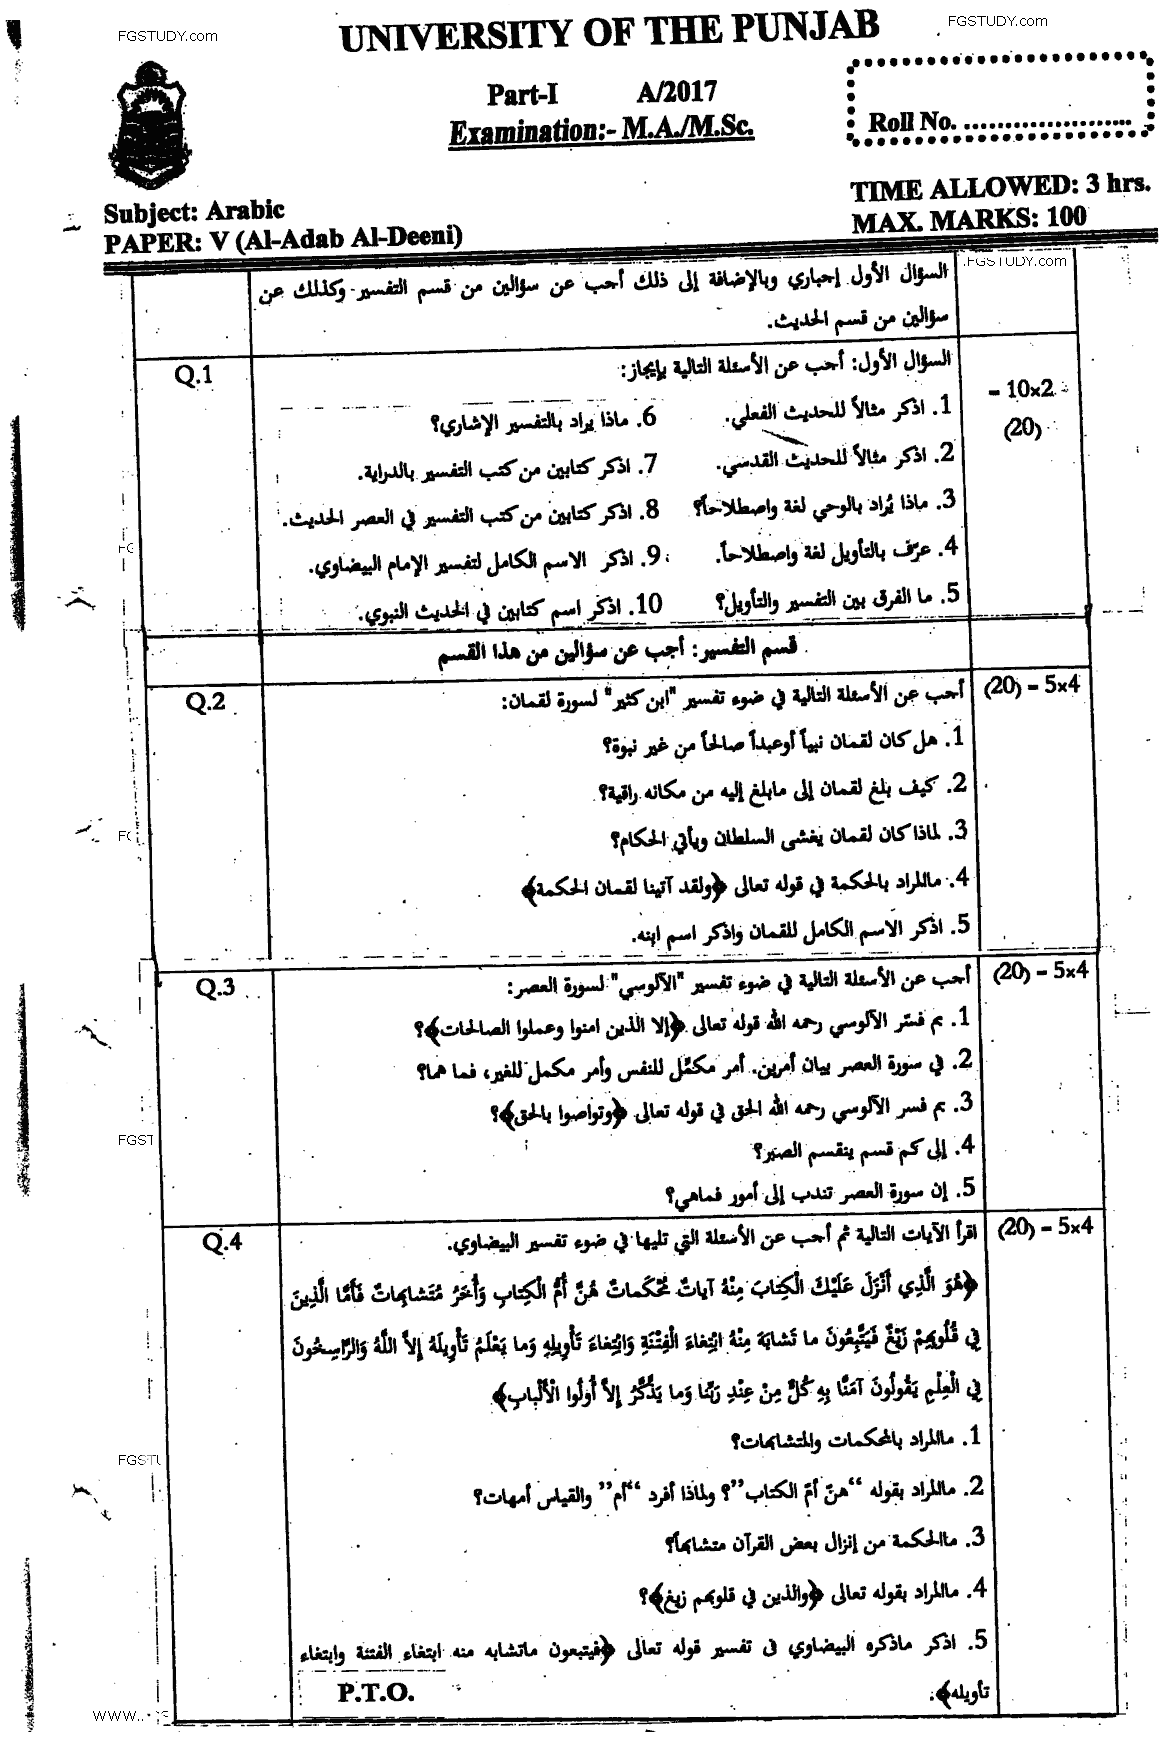 FGSTUDY.com
FGSTUDY.com
UNIVERSITY OF THE PUNJAB
Part-I A/2017
Examination:- M.A./M.Sc.
Roll No. .....................
TIME ALLOWED: 3 hrs.
MAX. MARKS: 100
Subject: Arabic
PAPER: V (Al-Adab Al-Deeni)
.FGSTUDY.com
السؤال الأول إجباري وبالإضافة إلى ذلك أجب عن سؤالين من قسم التفسير وكذلك عن
سؤالين من قسم الحديث.
Q.1
السؤال الأول: أجب عن الأسئلة التالية بإيجاز:
10x2 =
(20)
1. اذكر مثالاً للحديث الفعلي.
6. ماذا يراد بالتفسير الإشاري؟
2. اذكر مثالاً للحديث القدسي.
7. اذكر كتابين من كتب التفسير بالدراية.
3. ماذا يُراد بالوحي لغة واصطلاحاً؟
8. اذكر كتابين من كتب التفسير في العصر الحديث.
4. عرّف بالتأويل لغة واصطلاحاً.
9. اذكر الاسم الكامل لتفسير الإمام البيضاوي.
5. ما الفرق بين التفسير والتأويل؟
10. اذكر اسم كتابين في الحديث النبوي.
قسم التفسير: أجب عن سؤالين من هذا القسم
Q.2
أجب عن الأسئلة التالية في ضوء تفسير "ابن كثير" لسورة لقمان:
(20) = 5x4
1. هل كان لقمان نبياً أوعبداً صالحاً من غير نبوة؟
2. كيف بلغ لقمان إلى مابلغ إليه من مكانه راقية؟
3. لماذا كان لقمان يغشى السلطان ويأتي الحكام؟
4. ماالمراد بالحكمة في قوله تعالى ﴿ولقد آتينا لقمان الحكمة﴾
5. اذكر الاسم الكامل للقمان واذكر اسم ابنه.
Q.3
أجب عن الأسئلة التالية في ضوء تفسير "الآلوسي" لسورة العصر:
(20) = 5x4
1. بم فسّر الآلوسي رحمه الله قوله تعالى ﴿إلا الذين امنوا وعملوا الصالحات﴾؟
2. في سورة العصر بيان أمرين. أمر مكمِّل للنفس وأمر مكمل للغير، فما هما؟
3. بم فسر الآلوسي رحمه الله الحق في قوله تعالى ﴿وتواصوا بالحق﴾؟
4. إلى كم قسم ينقسم الصبر؟
5. إن سورة العصر تندب إلى أمور فماهي؟
Q.4
اقرأ الآيات التالية ثم أجب عن الأسئلة التي تليها في ضوء تفسير البيضاوي.
(20) = 5x4
﴿هُوَ الَّذِي أَنْزَلَ عَلَيْكَ الْكِتابَ مِنْهُ آياتٌ مُحْكَماتٌ هُنَّ أُمُّ الْكِتابِ وَأُخَرُ مُتَشابِهاتٌ فَأَمَّا الَّذِينَ
فِي قُلُوبِهِمْ زَيْغٌ فَيَتَّبِعُونَ ما تَشابَهَ مِنْهُ ابْتِغاءَ الْفِتْنَةِ وَابْتِغاءَ تَأْوِيلِهِ وَما يَعْلَمُ تَأْوِيلَهُ إِلاَّ اللَّهُ وَالرَّاسِخُونَ
فِي الْعِلْمِ يَقُولُونَ آمَنَّا بِهِ كُلٌّ مِنْ عِنْدِ رَبِّنا وَما يَذَّكَّرُ إِلاَّ أُولُوا الْأَلْبابِ﴾
1. ماالمراد بالمحكمات والمتشابهات؟
2. ماالمراد بقوله “هنّ أمّ الكتاب”؟ ولماذا أفرد “أم” والقياس أمهات؟
3. ماالحكمة من إنزال بعض القرآن متشابهاً؟
4. ماالمراد بقوله تعالى ﴿والذين في قلوبهم زيغ﴾؟
5. اذكر ماذكره البيضاوي فى تفسير قوله تعالى ﴿فيتبعون ماتشابه منه ابتغاء الفتنة وابتغاء
تأويله﴾.
P.T.O.